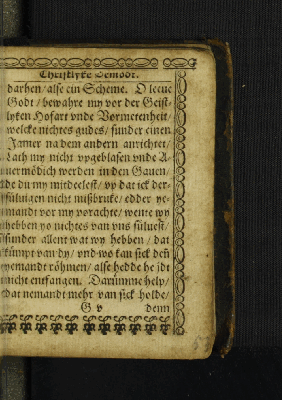 Christlyke Demodt.
darhen/alse ein Scheme. O leeue
Godt/bewahre my vor der Geist-
lyken Hofart vnde Vormetenheit/
welcke nichtes gudes/sunder einen
Jamer na dem andern anrichtet/
Lath my nicht vpgeblasen vnde A-
uermödich werden in den Gauen/
de du my mitdeelest/vp dat ick der-
süluigen nicht mißbruke/edder ye-
mandt vor my vorachte/wente wy
hebben yo nichtes van vns süluest/
sunder allent wat wy hebben/dat
kümpt van dy/vnd wo kan sick den
yemandt röhmen/alse hedde he idt
nicht entfangen. Darümme help/
Dat nemandt mehr van sick holde/
G v
denn